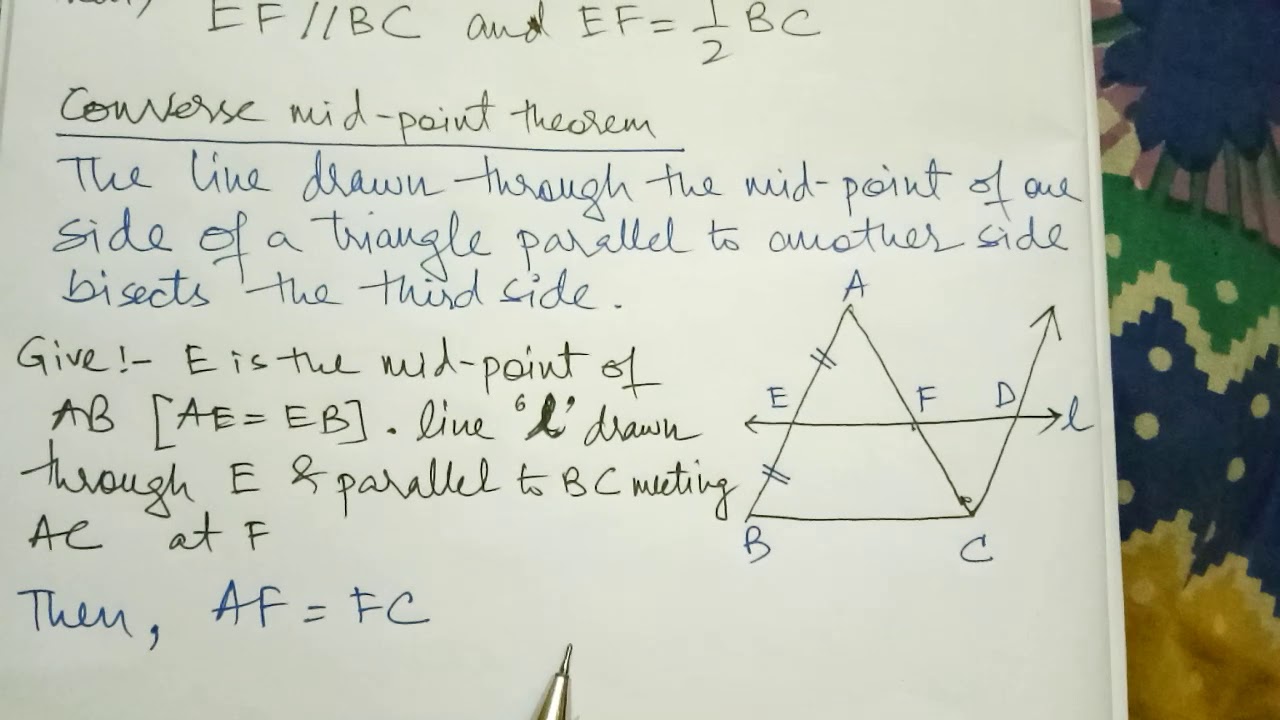 EF // BC and EF = 1/2 BC
Converse mid-point theorem
The line drawn through the mid-point of one
side of a triangle parallel to another side
bisects the third side.
Give:- E is the mid-point of
AB [AE = EB]. line 'l' drawn
through E & parallel to BC meeting
AC at F
Then, AF = FC
A
E F D l
B C